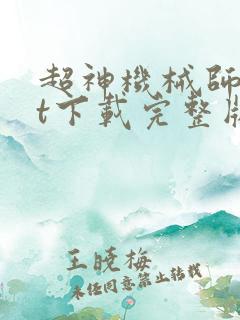 超神機械師
t下載完整版
王曉梅
未経同意禁止轉載